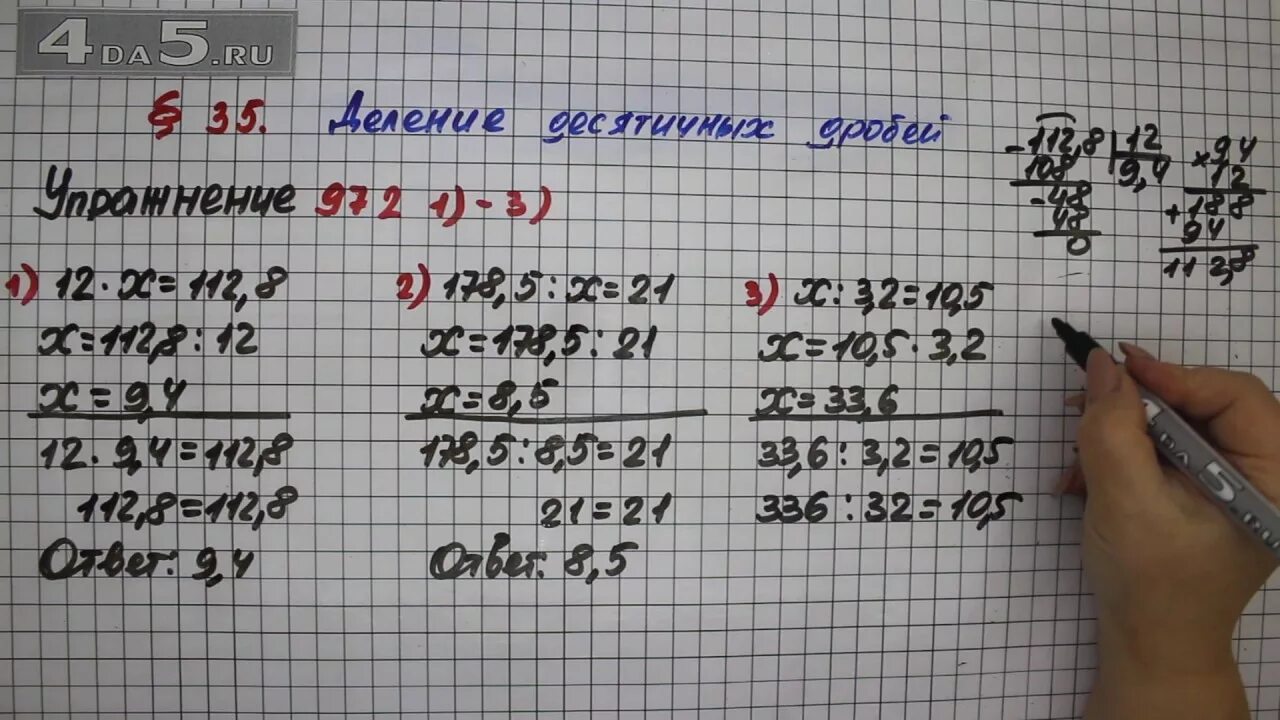 4DA5.RU
§ 35. Деление десятичных дробей
Упражнение 972 1)-3)
1) 12·x=112,8
x=112,8:12
x=9,4
12·9,4=112,8
112,8=112,8
Ответ: 9,4
2) 178,5:x=21
x=178,5:21
x=8,5
178,5:8,5=21
21=21
Ответ: 8,5
3) x:3,2=10,5
x=10,5·3,2
x=33,6
33,6:3,2=10,5
336:32=10,5
-112,8|12
108 9,4
-48
48
0
×94
12
+188
94
112,8
4DA5.RU